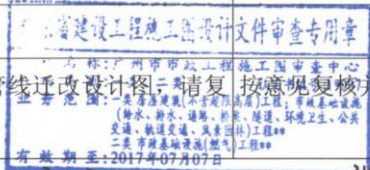 省建设工程施工图设计文件审查专用章
名称:广州市市政工程施工图审查中心
管线迁改设计图,请复 按意见复核并
业务范围:一类房屋建筑(不含超限高层)工程;市政基础设施
(给水、排水、道路、桥梁、隧道、环境卫生、公共
交通、轨道交通、风景园林)工程**
二类市政基础设施(燃气)工程**
有效期至:2017年07月07日